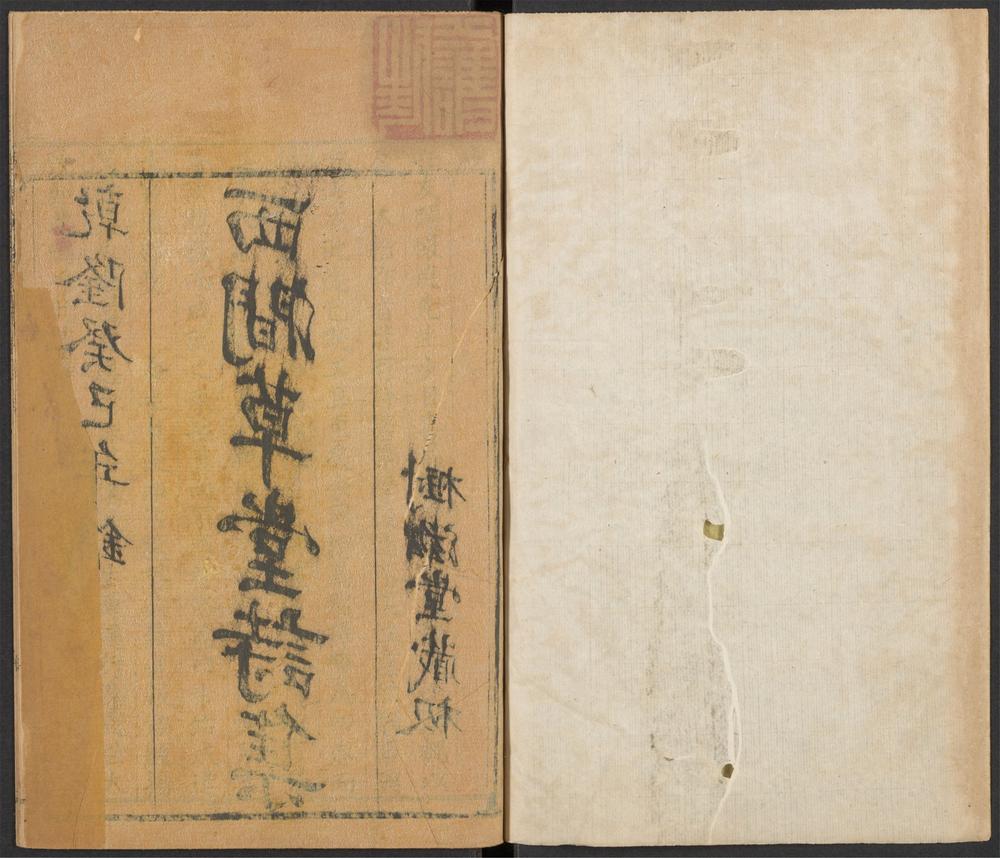 乾隆癸巳年 金
西澗草堂詩集
樹滋堂藏板